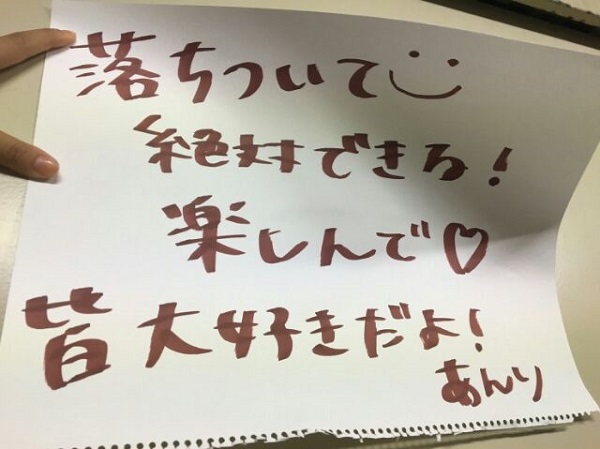 落ちついて☺
絶対できる!
楽しんで♡
皆大好きだよ!
あんり